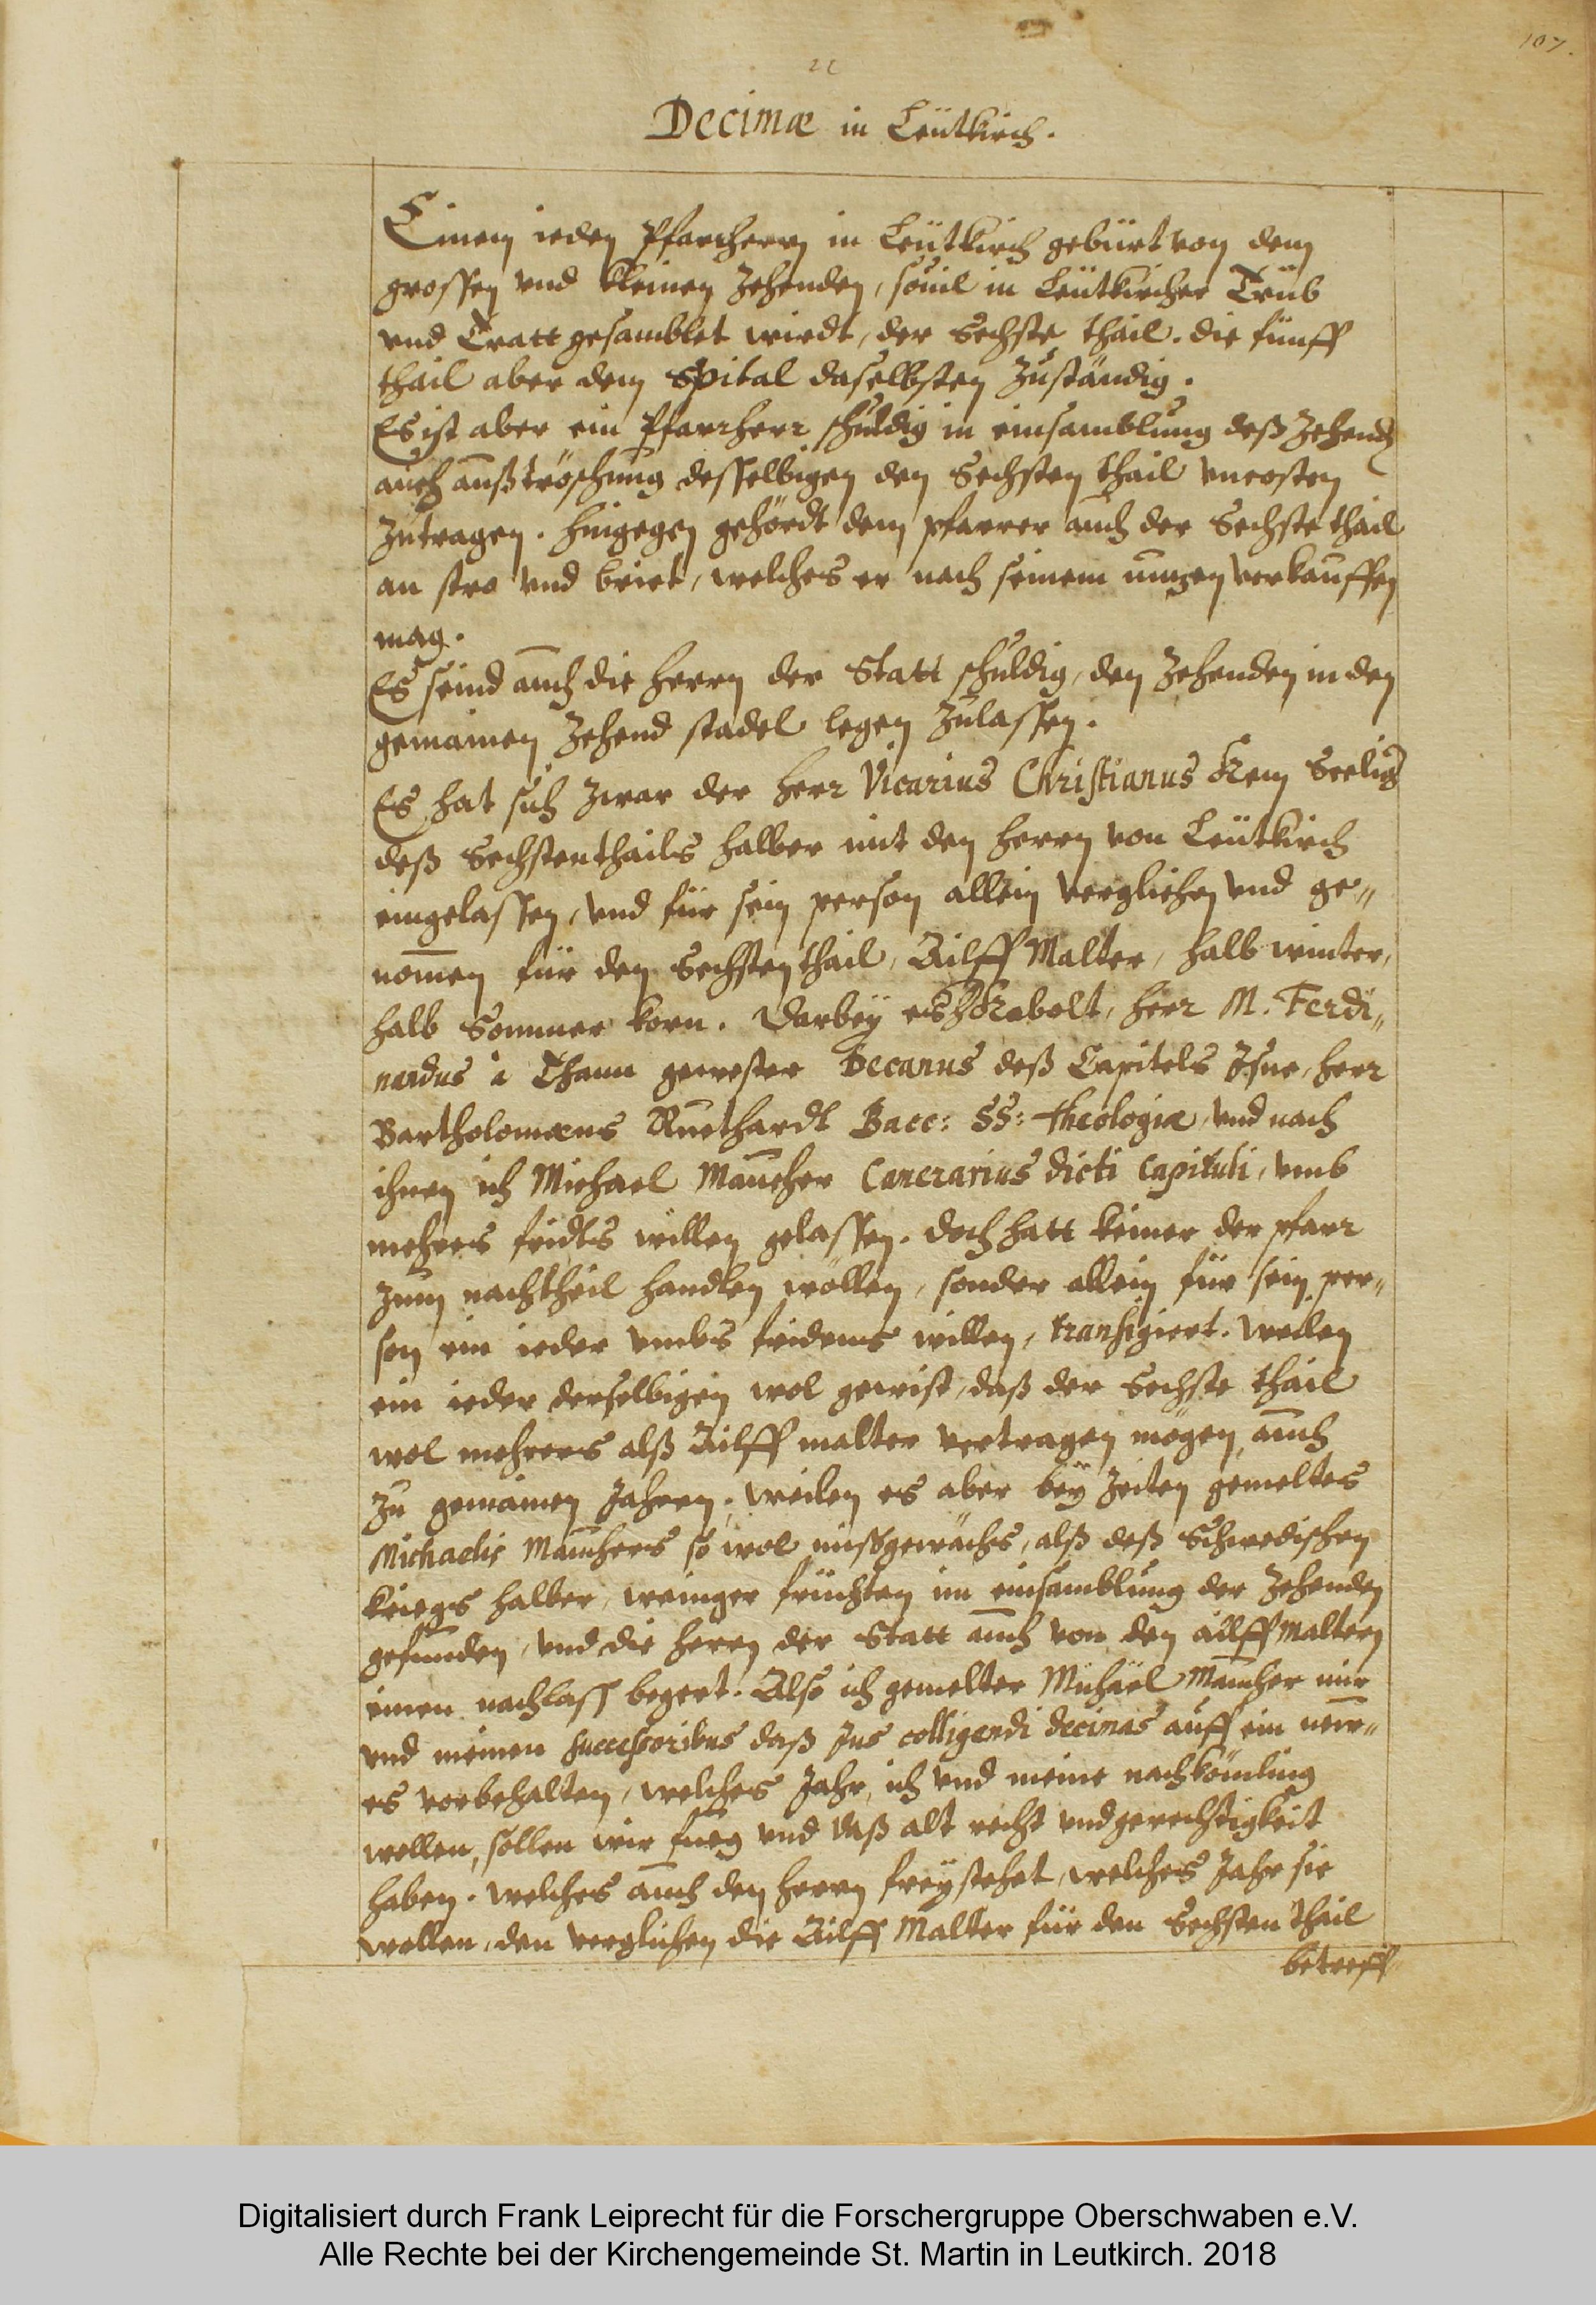 107.
22
Decimæ in Leütkirch.
Einem ieden Pfarrherrn in Leütkirch gebürt von dem
grossen vnd kleinen Zehenden, souil in Leütkircher Trüb
vnd Tratt gesamblet wirdt, der Sechste thail. die fünff
thail aber dem Spital daselbsten Zuständig.
Es ist aber ein Pfarrherr schuldig in einsamblung deß Zehends
auch außtröschung desselbigen den Sechsten thail vncosten
Zutragen. Hingegen gehördt dem pfarrer auch der Sechste thail
an stro vnd briet, welches er nach seinem nuzen verkauffen
mag.
Es seind auch die Herrn der Statt schuldig, den Zehenden in den
gemainen Zehend stadel legen Zulassen.
Es hat sich zwar der Herr Vicarius Christianus Kem Seelig
deß Sechstenthails halber mit den Herrn von Leütkirch
eingelassen, vnd für sein person allein verglichen vnd ge„
nom̄en für den Sechsten thail, Ailff Malter, halb winter,
halb Sommer korn. Darbey es H Kabolt, Herr M. Ferdi„
nandus à Thann gewester Decanus deß Capitels Isne, Herr
Bartholomæus Ruethardt Bacc: SS: Theologiæ, vnd nach
ihnen ich Michael Maucher Camerarius dicti Capituli, vmb
mehrers fridts willen gelassen. doch hatt keiner der pfarr
zum nachtheil handlen wöllen, sonder allein für sein per„
son ein ieder vmbs fridens willen, transigiert. Weilen
ein ieder derselbigen wol gewist, daß der Sechste thail
wol mehrers alß Ailff malter vertragen mögen, auch
Zu gemainen Jahren. weilen es aber bey Zeiten gemeltes
Michaelis Mauchers so wol mißgewächs, alß deß Schwedischen
kriegs halber, weniger früchten im einsamblung der Zehenden
gefunden, vnd die Herrn der Statt auch von den ailff Maltern
einen nachlass begert. Also ich gemelter Michael Maucher mir
vnd meinen successoribus daß Jus colligendi decimas auff ein new„
es vorbehalten, welches Jahr, ich vnd meine nachkömling
wellen, sollen wir fueg vnd daß alt recht vnd gerechtigkeit
haben. welches auch den Herrn freystehet, welches Jahr sie
wellen, den verglichen die Ailff Malter für den Sechsten thail
betreff
Digitalisiert durch Frank Leiprecht für die Forschergruppe Oberschwaben e.V.
Alle Rechte bei der Kirchengemeinde St. Martin in Leutkirch. 2018